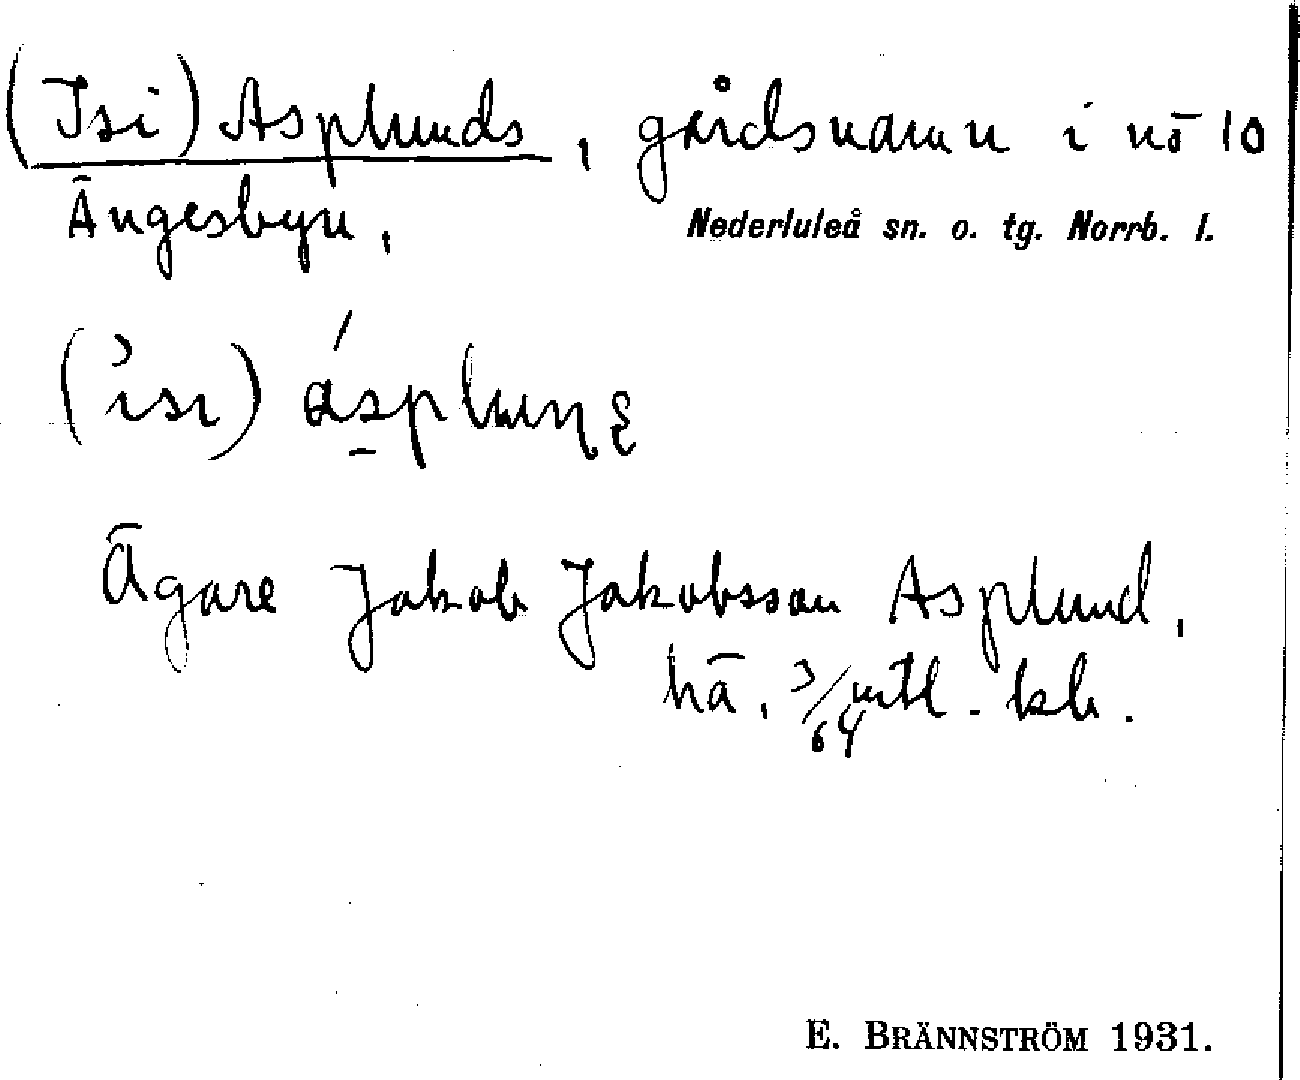 (Isi) Asplunds, gårdsnamn i nō 10
Ängesbyn,
Nederluleå sn. o. tg. Norrb. l.
Ägare Jakob Jakobsson Asplund,
hä, 3/64 mtl. kb.
E. BRÄNNSTRÖM 1931.